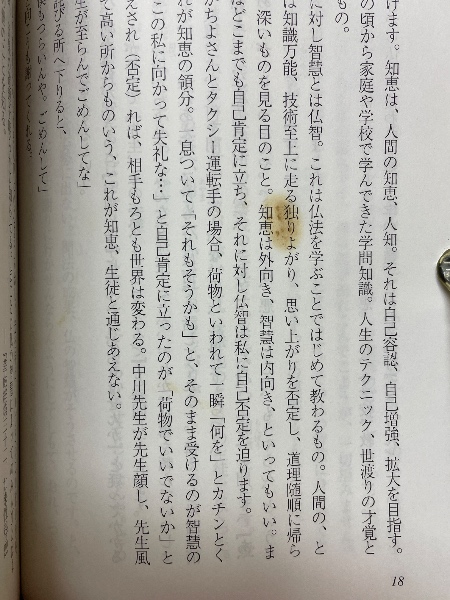 げます。知恵は、人間の知恵、人知。それは自己容認、自己増強、拡大を目指す。
の頃から家庭や学校で学んできた学問知識。人生のテクニック、世渡りの才覚と
もの。
に対し智慧とは仏智。これは仏法を学ぶことではじめて教わるもの。人間の、と
は知識万能、技術至上に走る独りよがり、思い上がりを否定し、道理随順に帰ら
深いものを見る目のこと。知恵は外向き、智慧は内向き、といってもいい。ま
はどこまでも自己肯定に立ち、それに対し仏智は私に自己否定を迫ります。
かちよさんとタクシー運転手の場合、荷物といわれて一瞬「何を」とカチンとく
れが知恵の領分。一息ついて「それもそうかも」と、そのまま受けるのが智慧の
この私に向かって失礼な…」と自己肯定に立ったのが「荷物でいいでないか」と
えされ（否定）れば、相手もろとも世界は変わる。中川先生が先生顔し、先生風
て高い所からものいう、これが知恵、生徒と通じあえない。
生が至らんでごめんしてな」
詫びる所へ下りると、
僕もつらいんや。ごめんして」
18